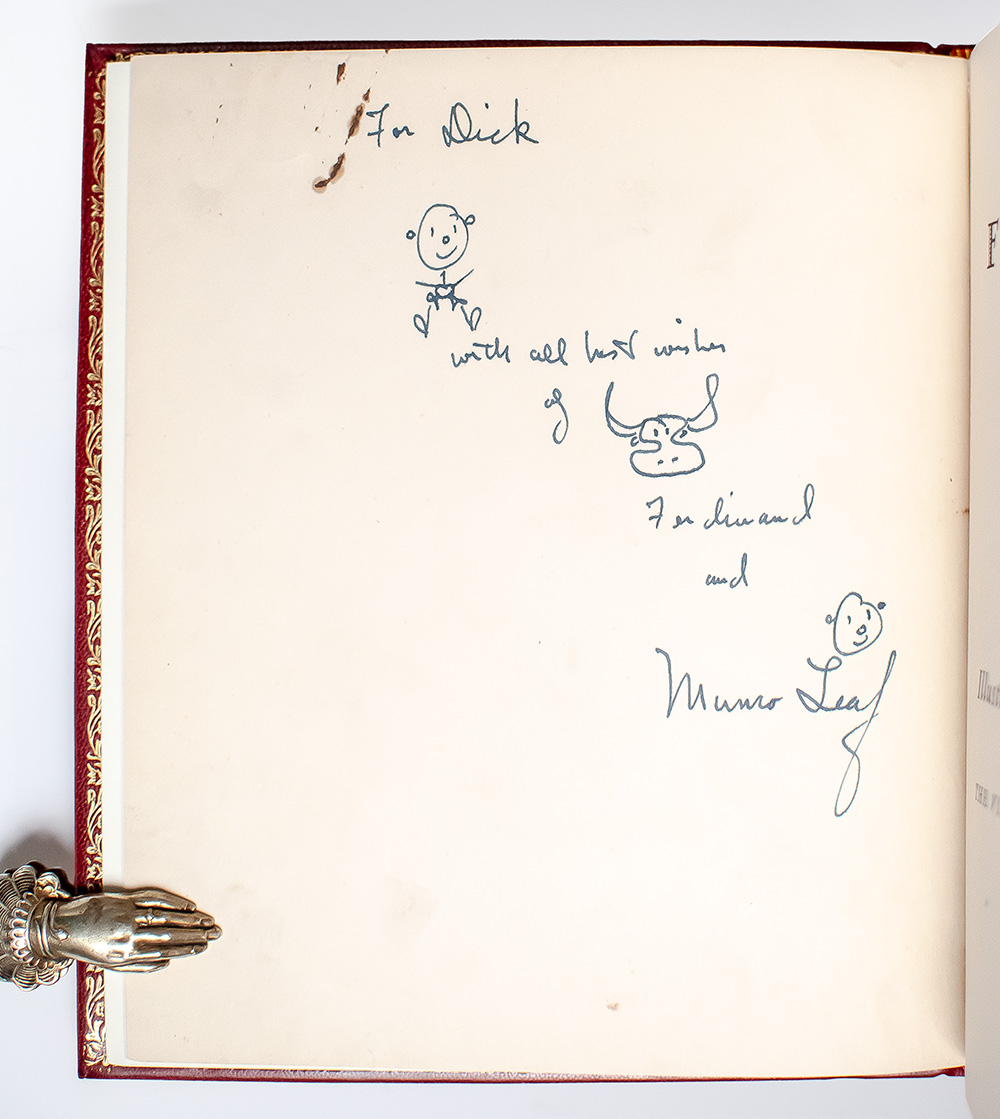 For Dick
with all best wishes
of
Ferdinand
and
Munro Leaf
F
Illust
THE